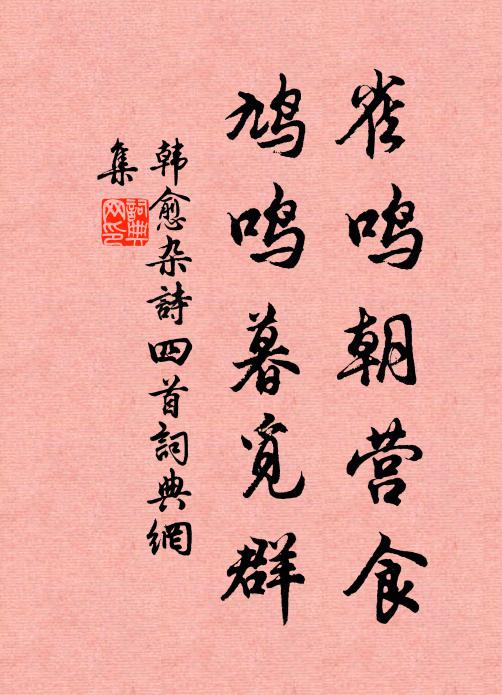 雀鸣朝营食
鸠鸣暮觅群
韩愈杂詩四首詞典網
集
詞典网印